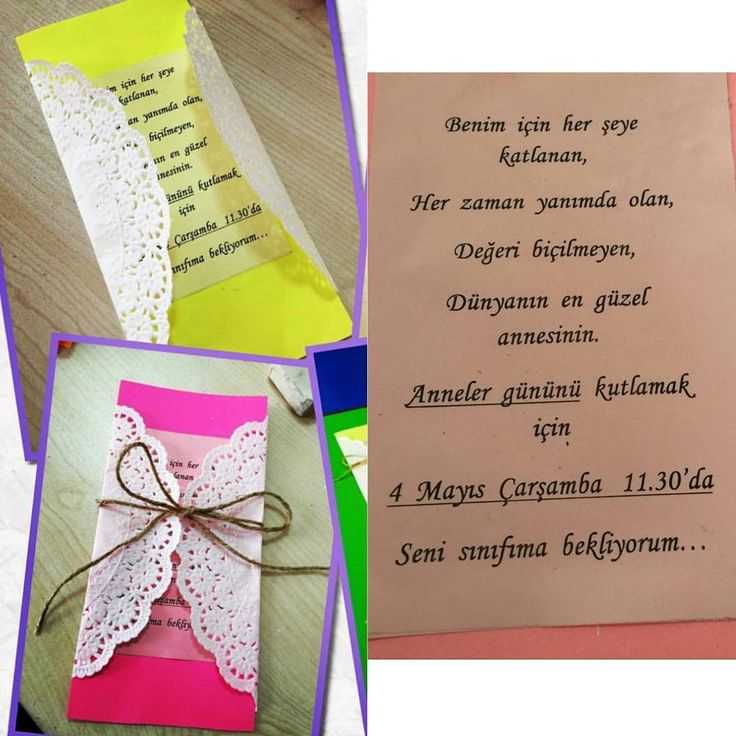 için her şeye
katlanan,
yanımda olan,
biçilmeyen,
en güzel
gününü kutlamak
için
Çarşamba 11.30'da
sınıfıma bekliyorum...
için her
katlanan
Benim için her şeye
katlanan,
Her zaman yanımda olan,
Değeri biçilmeyen,
Dünyanın en güzel
annesinin.
Anneler gününü kutlamak
için
4 Mayıs Çarşamba 11.30'da
Seni sınıfıma bekliyorum...